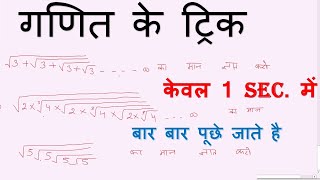 गणित के ट्रिक
√3+√3+√3+√3 ----∞ का मान ज्ञात करो
केवल 1 SEC. में
√2×∛4×√2×∛4×√2×∛4 ....∞ का मान
बार बार पूछे जाते है
√5√5√5√5 का मान ज्ञात करो